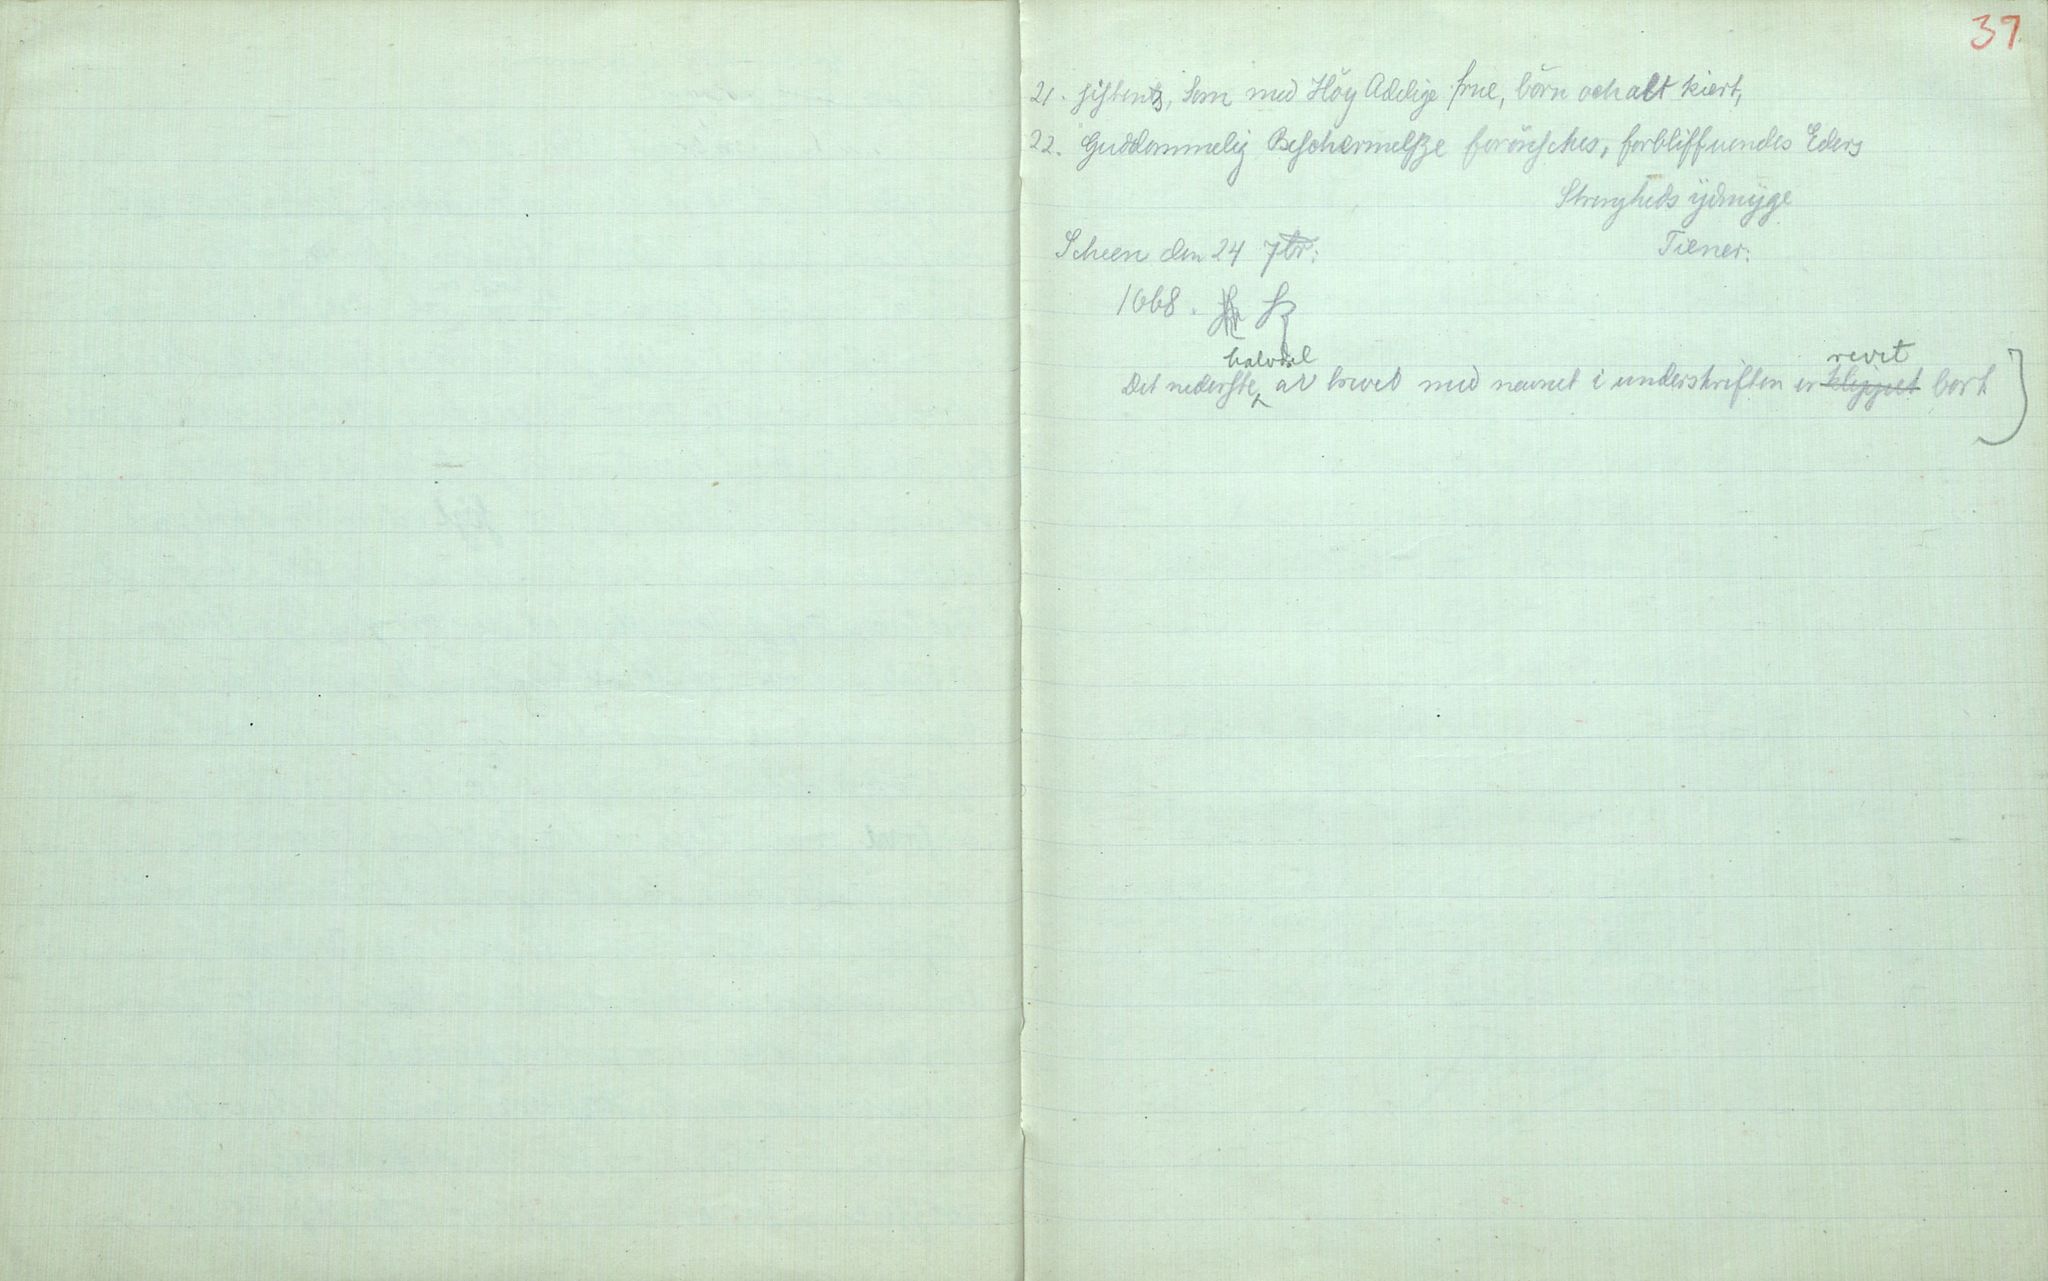 39
21. sistentz, Som med Höy Adelige frue, börn och alt kiert,
22. Guddommelig Beschermelsze forönsches, forbliffuendes Eders
Strengheds ÿdmÿge
Scheen den 24 7br: Tiener:
1668.
halvdel revet
Det nederste av brevet med navnet i underskriften er klippet bort